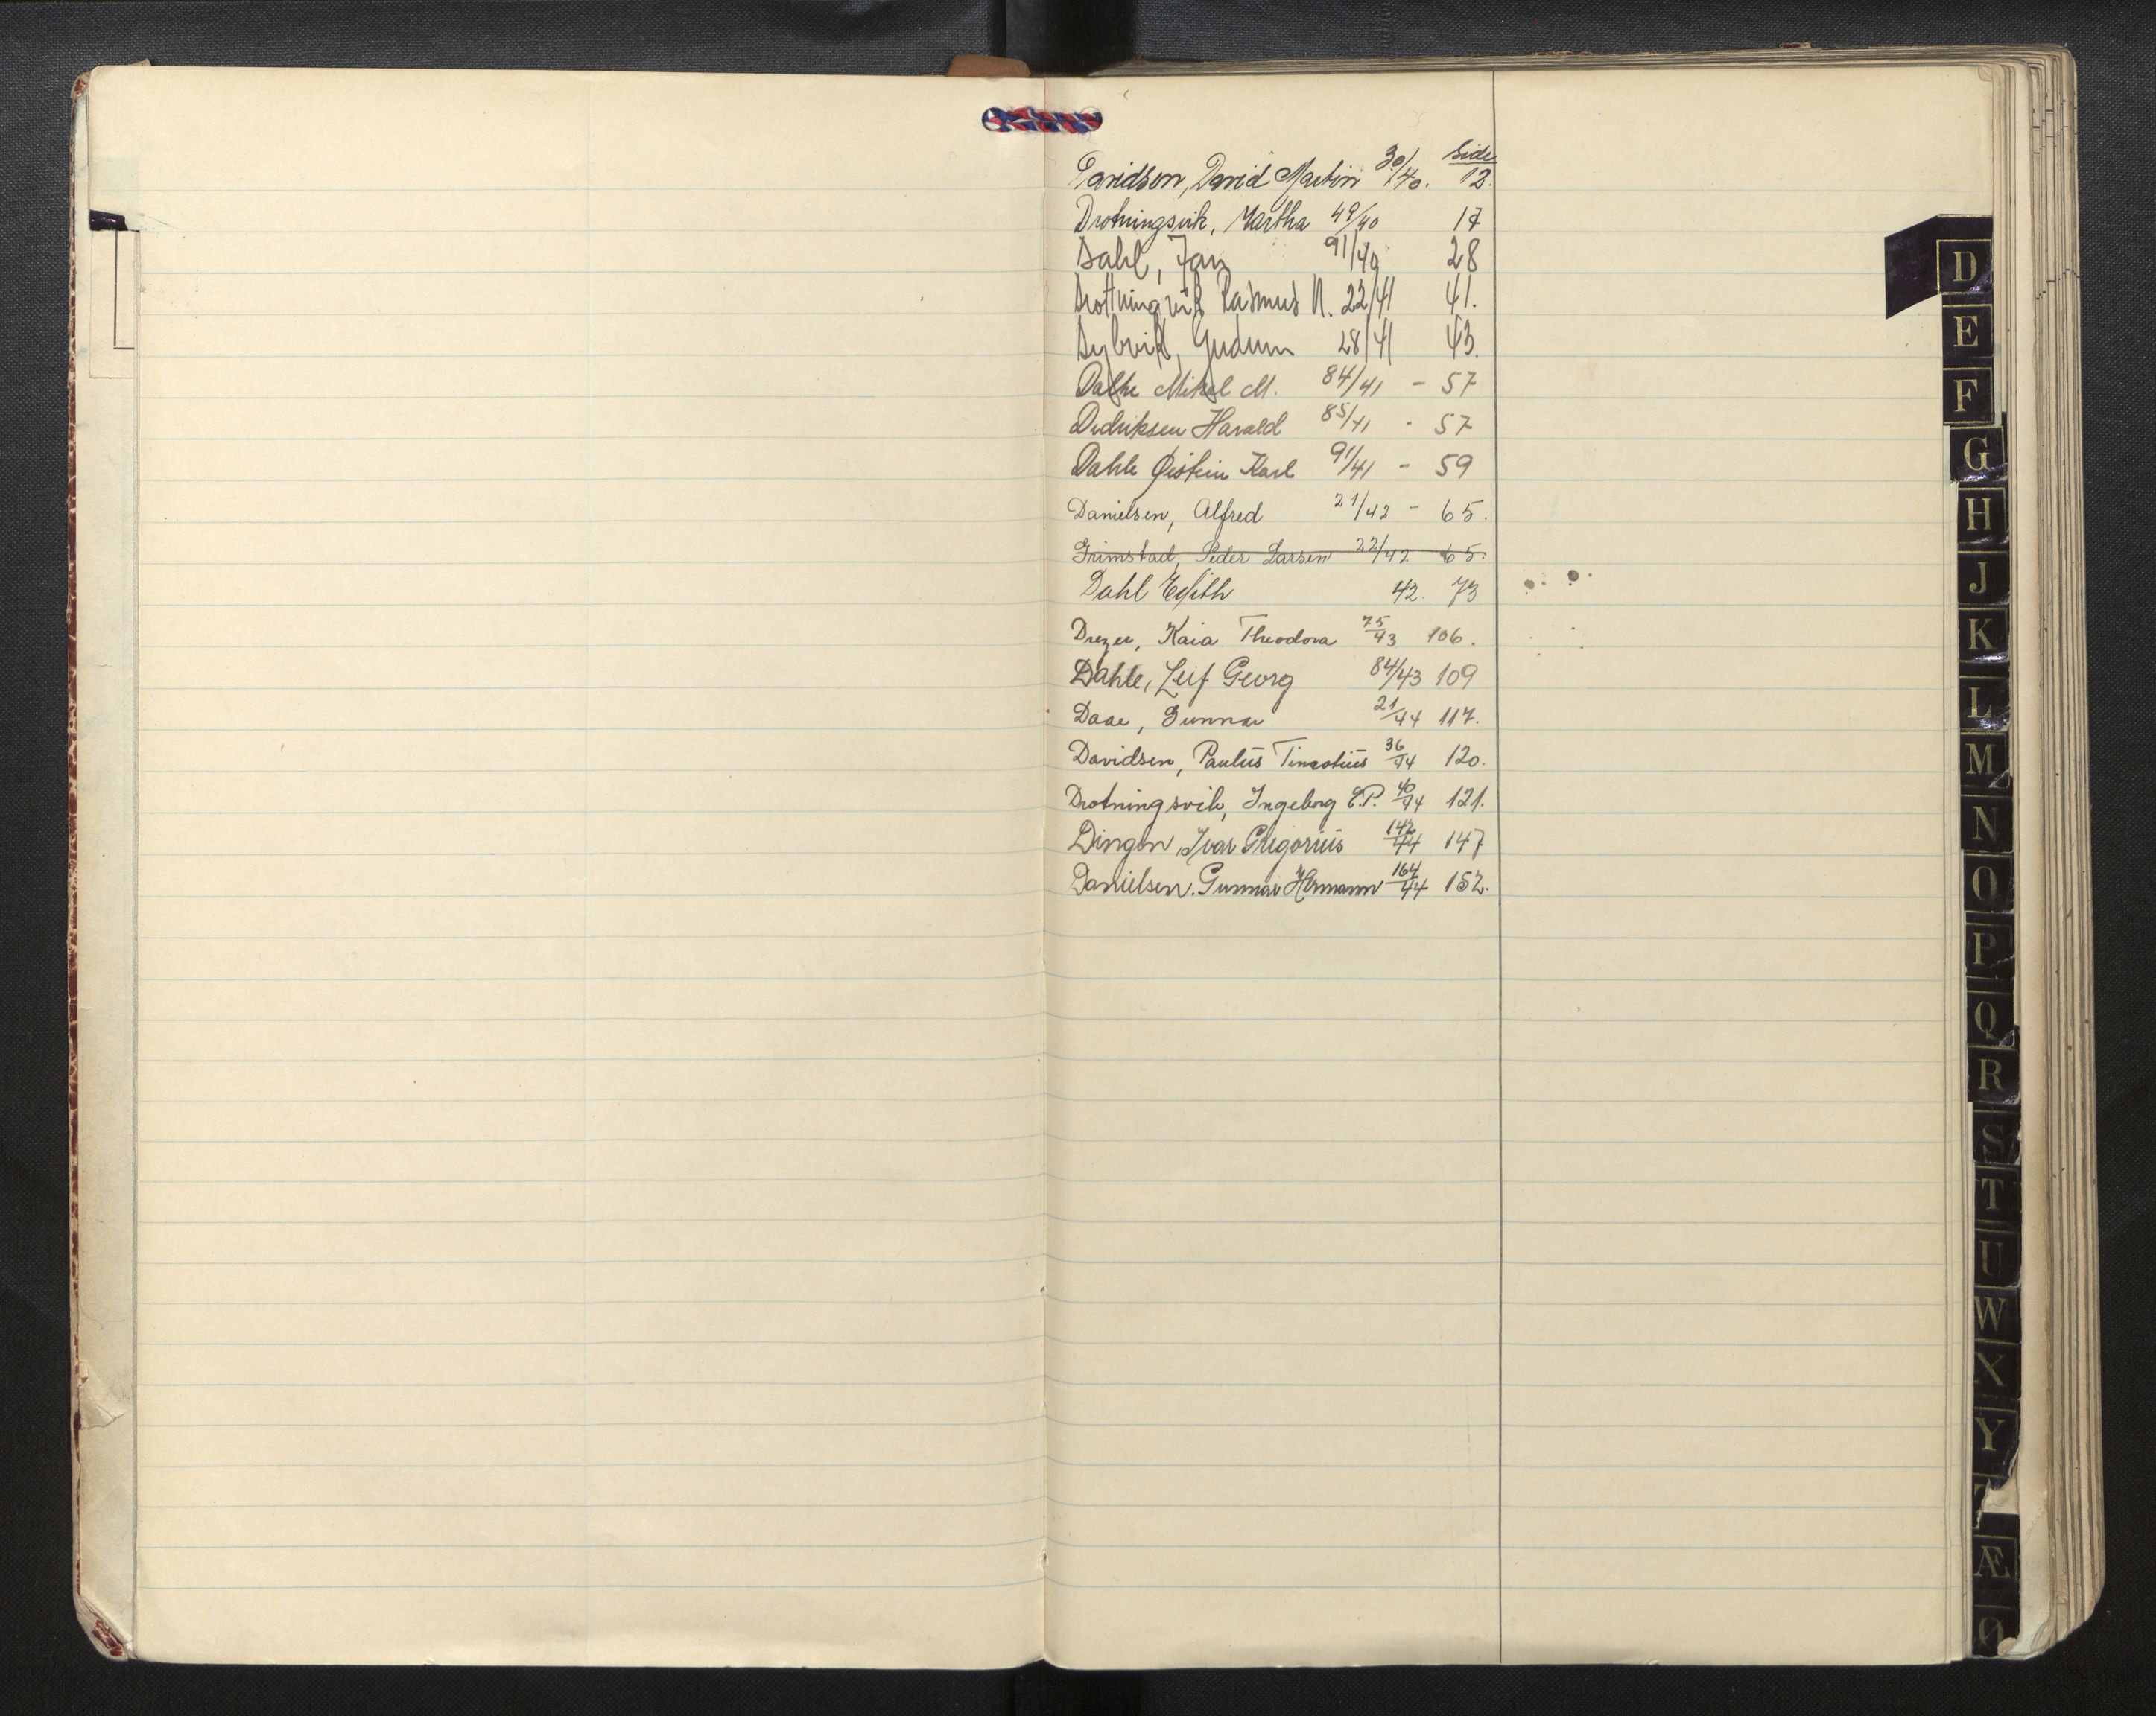 Side
Davidson, David Martin 30/40. 12.
Drotningsvik, Martha 49/40 17
Dahl, Jan 91/40 28
Drottningvik Rasmus N. 22/41 41.
Dybvik, Gudrun 28/41 43.
Dahle Mikal M. 84/41 - 57
Dedriksen Harald 85/41 - 57
Dahle Øistein Karl 91/41 - 59
Danielsen, Alfred 21/42 - 65.
Grimstad, Peder Larsen 22/42 65.
Dahl Edith 42. 73
Kaia Theodora 75/43 106.
Dahle, Leif Georg 84/43 109
Daae, Gunnar 21/44 117.
Davidsen, Paulus Timotius 36/44 120.
Drotningsvik, Ingeborg E.P. 40/44 121.
Dingen, Ivar Gregorius 142/44 147
Danielsen. Gunnar Hermann 164/44 152.
D
E
F
G
H
J
K
L
M
N
O
P
Q
R
S
T
U
W
X
Y
Æ
Ø